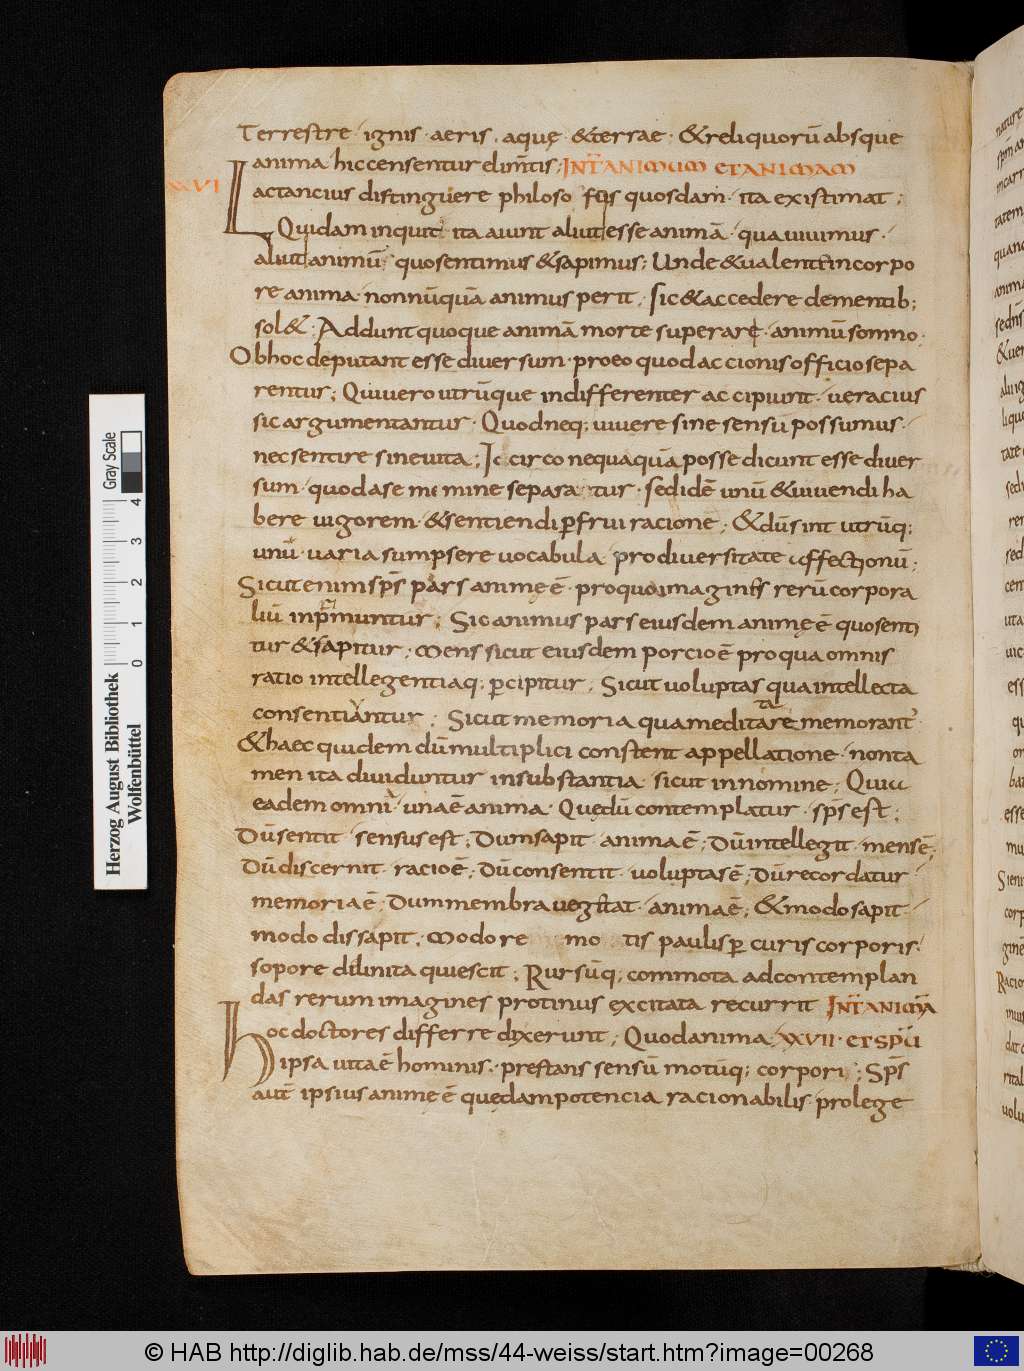 Terrestre · ignis · aeris · aquę · &terrae · &reliquorū absque
anima hiccensentur elim̄tis; INT̄ ANIMUM ET ANIMAM
XXVI
Lactancius distinguere philoso fus quosdam · ita existimat;
Quidam inquit ita aiunt aliut esse animā · qua uiuimus ·
aliut animū · quo sentimus &sapimus; Unde &ualent in corpo
re anima · nonnūquā animus perit, sic &accedere dementib;
sol& · Addunt quoque animā morte superare · animū somno ·
Obhoc deputant esse diuersum · pro eo quod accionis officio sepa
rentur; Qui uero utrūque indifferenter accipiunt · ueracius
sic argumentantur · Quod neq; uiuere sine sensū possumus ·
nec sentire sine uita; Iccirco nequaquā posse dicunt esse diuer
sum · quod a se me mine separa tur · sed idē unū &uiuendi ha
bere uigorem · &sentiendi p̄frui racione; &dū sint utrūq;
unū · uaria sumpsere uocabula pro diuersitate affectionū;
Sicut enim sp̄s pars animę ē · pro quo imagines rerū corpora
liū inp̄muntur; Sic animus pars eiusdem animę ē quo senti
tur &sapitur; Mens sicut eiusdem porcio ē pro qua omnis
ratio intellegentiaq; p̄cipitur; Sicut uoluptas qua intellecta
consentiantur; Sicut memoria qua meditare memorant
ta
&haec quidem dū multiplici constent appellatione · non ta
men ita diuiduntur in substantia sicut in nomine; Quia
eadem omni · una ē anima · Quę dū contemplatur · sp̄s est;
Dū sentit · sensus est; Dum sapit anima ē; Dū intellegit mens ē;
Dū discernit racio ē; Dū consentit uoluptas ē; Dū recordatur
memoria ē; Dum membra uegetat · anima ē; &modo sapit
modo dissapit; Modo re mo tis paulisp̄ curis corporis
sopore dilinita quiescit; Rursūq; commota ad contemplan
das rerum imagines protinus excitata recurrit INT̄ ANIMĀ
Hoc doctores differre dixerunt; Quod anima XXVII · ET SPŪ
ipsa uita ē hominis, prestans sensū motūq; corpori; Sp̄s
aut̄ ipsius animę ē quędam potencia racionabilis prolege
Herzog August Bibliothek
Wolfenbüttel
Gray Scale
0 1 2 3 4
© HAB http://diglib.hab.de/mss/44-weiss/start.htm?image=00268